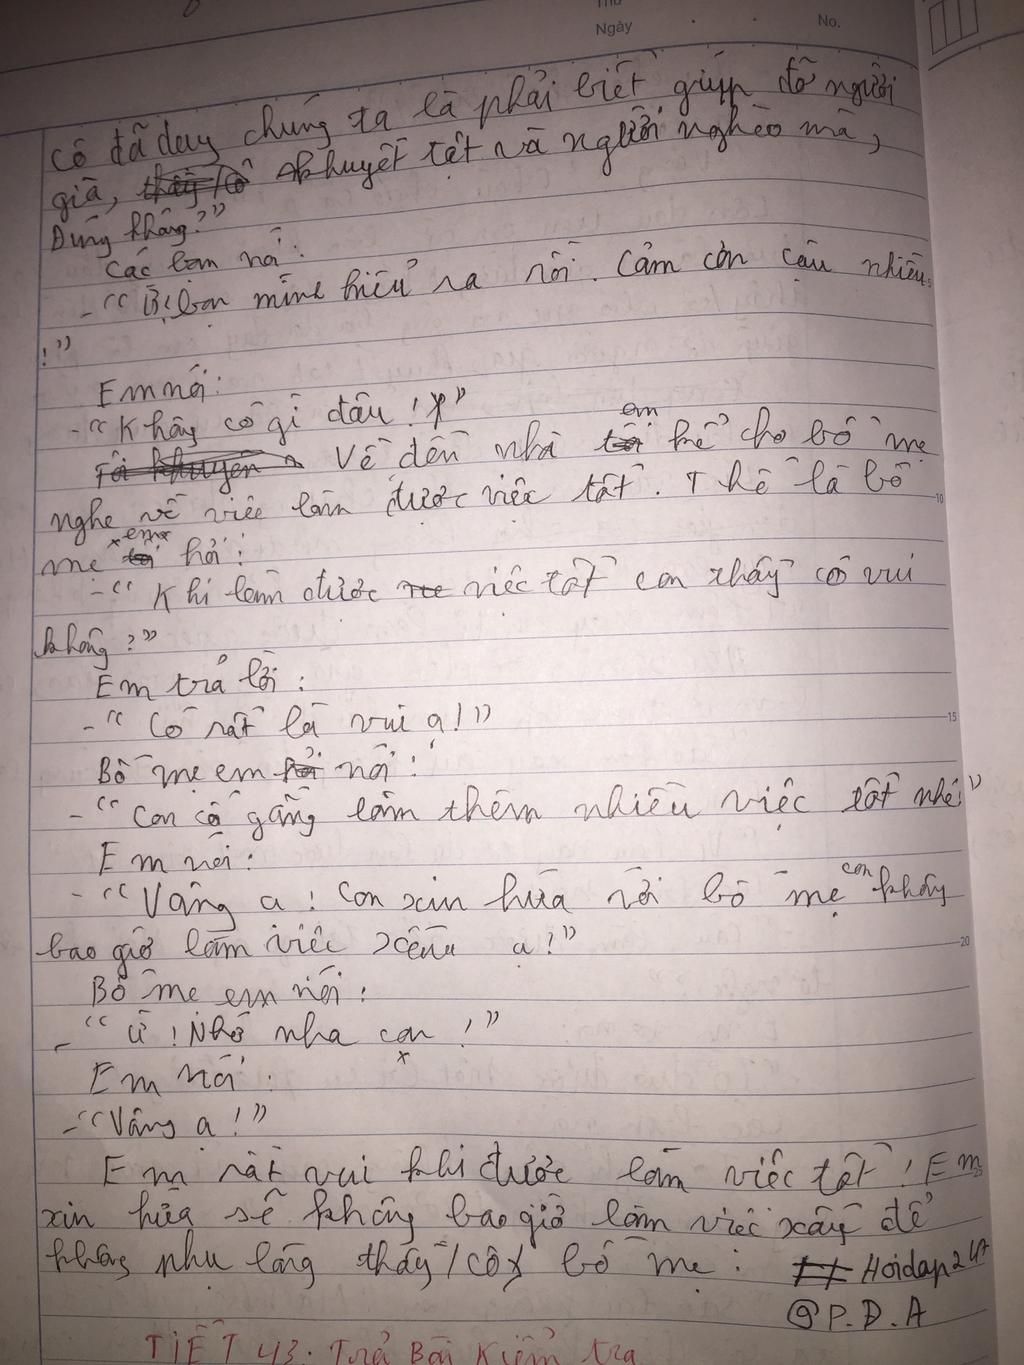 Thứ
Ngày
No.
cô đã dạy chúng ta là phải biết giúp đỡ người
già, khuyết tật và người nghèo mà,
Đúng không?"
Các bạn nói:
-"Ừ! bạn mình hiểu ra rồi. Cảm ơn cậu nhiều
!"
Em nói:
-"Không có gì đâu!"
Về đến nhà em kể cho bố mẹ
nghe về việc làm được việc tốt. Thế là bố
mẹ em hỏi:
-"Khi làm được việc tốt con thấy có vui
không?"
Em trả lời:
-"Có rất là vui ạ!"
Bố mẹ em nói:
-"Con cố gắng làm thêm nhiều việc tốt nhé!"
Em nói:
-"Vâng ạ! Con xin hứa với bố mẹ con không
bao giờ làm việc xấu ạ!"
Bố mẹ em nói:
-"Ừ! Nhớ nha con!"
Em nói:
-"Vâng ạ!"
Em rất vui khi được làm việc tốt! Em
xin hứa sẽ không bao giờ làm việc xấu để
không phụ lòng thầy/cô bố mẹ.
# Hoidap247
@P.D.A
TIẾT 43: Trả Bài Kiểm tra
5
10
15
20
25